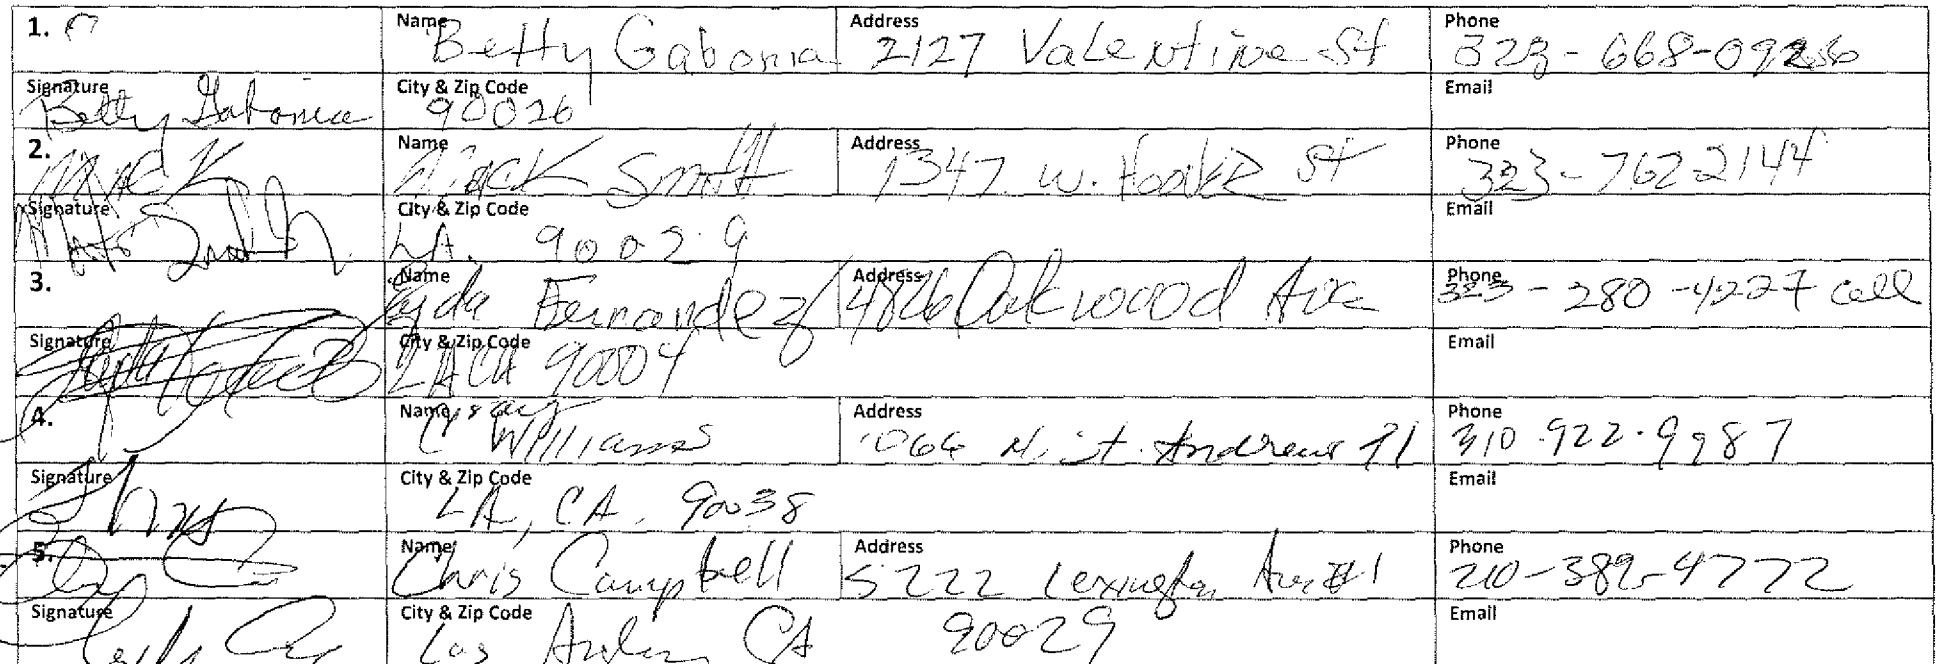 1. Name Betty Gabonia Address 2127 Valentine St Phone 323-668-0926
Signature Betty Gabonia City & Zip Code 90026 Email
2. Mack Name Mack Smith Address 1347 W. St Phone 323-762-2144
Signature City & Zip Code LA. 90029 Email
3. Name Fernandez Address 4826 Oakwood Ave Phone 323-280-4227 cell
Signature City & Zip Code LA CA 90004 Email
4. Name C Williams Address 1066 N. St. Andrews Pl Phone 310.922.9987
Signature City & Zip Code LA, CA, 90038 Email
5. Name Chris Campbell Address 5222 Lexington Ave #1 Phone 210-389-4772
Signature City & Zip Code Los Angeles CA 90029 Email